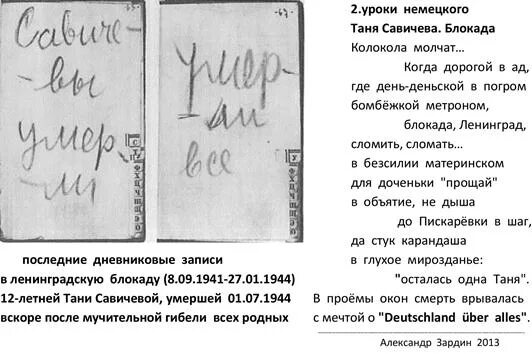 Савиче-
-вы
умер
-ли
-67-
умер-
-ли
все
последние дневниковые записи
в ленинградскую блокаду (8.09.1941-27.01.1944)
12-летней Тани Савичевой, умершей 01.07.1944
вскоре после мучительной гибели всех родных
2.уроки немецкого
Таня Савичева. Блокада
Колокола молчат…
Когда дорогой в ад,
где день-деньской в погром
бомбёжкой метроном,
блокада, Ленинград,
сломить, сломать…
в безсилии материнском
для доченьки "прощай"
в объятие, не дыша
до Пискарёвки в шаг,
да стук карандаша
в глухое мирозданье:
"осталась одна Таня".
В проёмы окон смерть врывалась
с мечтой о "Deutschland über alles".
Александр Зардин 2013